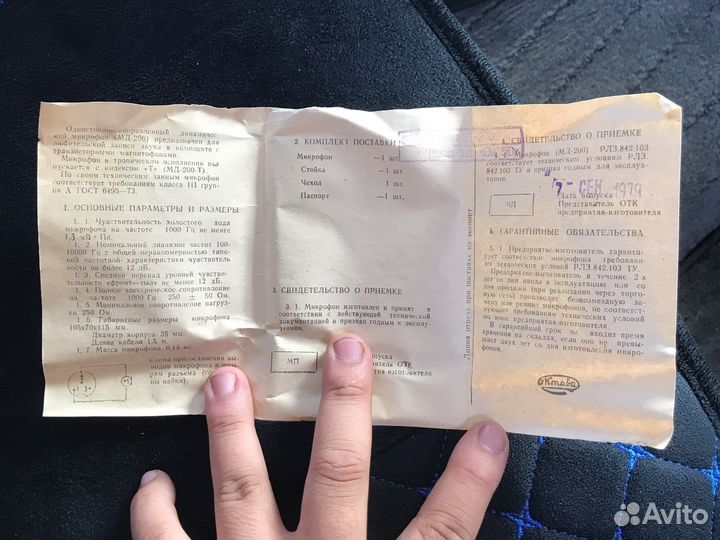 Односторонненаправленный динамичес-
кий микрофон (МД-200) предназначен для
любительской записи звука в комплекте с
транзисторными магнитофонами.
Микрофон в тропическом исполнении вы-
пускается с индексом «Т» (МД-200-Т).
По своим техническим данным микрофон
соответствует требованиям класса III груп-
па А ГОСТ 6495—73.
1. ОСНОВНЫЕ ПАРАМЕТРЫ И РАЗМЕРЫ
1. 1. Чувствительность холостого хода
микрофона на частоте 1000 Гц не менее
1,3 мВ/Па.
1. 2. Номинальный диапазон частот 100-
10000 Гц с общей неравномерностью типо-
вой частотной характеристики чувствитель-
ности не более 12 дБ.
1. 3. Средний перепад уровней чувстви-
тельности «фронт—тыл» не менее 12 дБ.
1. 4. Полное электрическое сопротивление
на частоте 1000 Гц 250 ± 50 Ом.
1. 5. Минимальное сопротивление нагруз-
ки 250 Ом.
1. 6. Габаритные размеры микрофона
105х70х115 мм.
Диаметр корпуса 35 мм.
Длина кабеля 1,5 м.
1. 7. Масса микрофона 0,14 кг.
Схема присоединения вы-
водов микрофона к
разъема (со
ны пайки).
2. КОМПЛЕКТ ПОСТАВКИ
Микрофон —1 шт.
Стойка —1 шт.
Чехол —1 шт.
Паспорт —1 шт.
3. СВИДЕТЕЛЬСТВО О ПРИЕМКЕ
3. 1. Микрофон изготовлен и принят в
соответствии с действующей технической
документацией и признан годным к эксплу-
атации.
МП
Линия отреза при поставке на экспорт
4. СВИДЕТЕЛЬСТВО О ПРИЕМКЕ
Микрофон (МД-200) РЛ3.842.103
соответствует техническим условиям РЛ3.
842.103 ТУ и признан годным для эксплуа-
тации.
7- СЕН 1979
МП
Дата выпуска
Представитель ОТК
предприятия-изготовителя
5. ГАРАНТИЙНЫЕ ОБЯЗАТЕЛЬСТВА
5. 1 Предприятие-изготовитель гаранти-
рует соответствие микрофона требовани-
ям технических условий РЛ3.842.103 ТУ.
Предприятие-изготовитель в течение 2-х
лет со дня ввода в эксплуатацию или со
дня продажи (при реализации через торго-
вую сеть) производит безвозмездную за-
мену или ремонт микрофонов, не соответс-
твующих требованиям технических условий
по вине предприятия-изготовителя.
В гарантийный срок входят время
хранения на складах, если оно не превы-
шает двух лет со дня изготовления микро-
фонов.
Октава
Avito